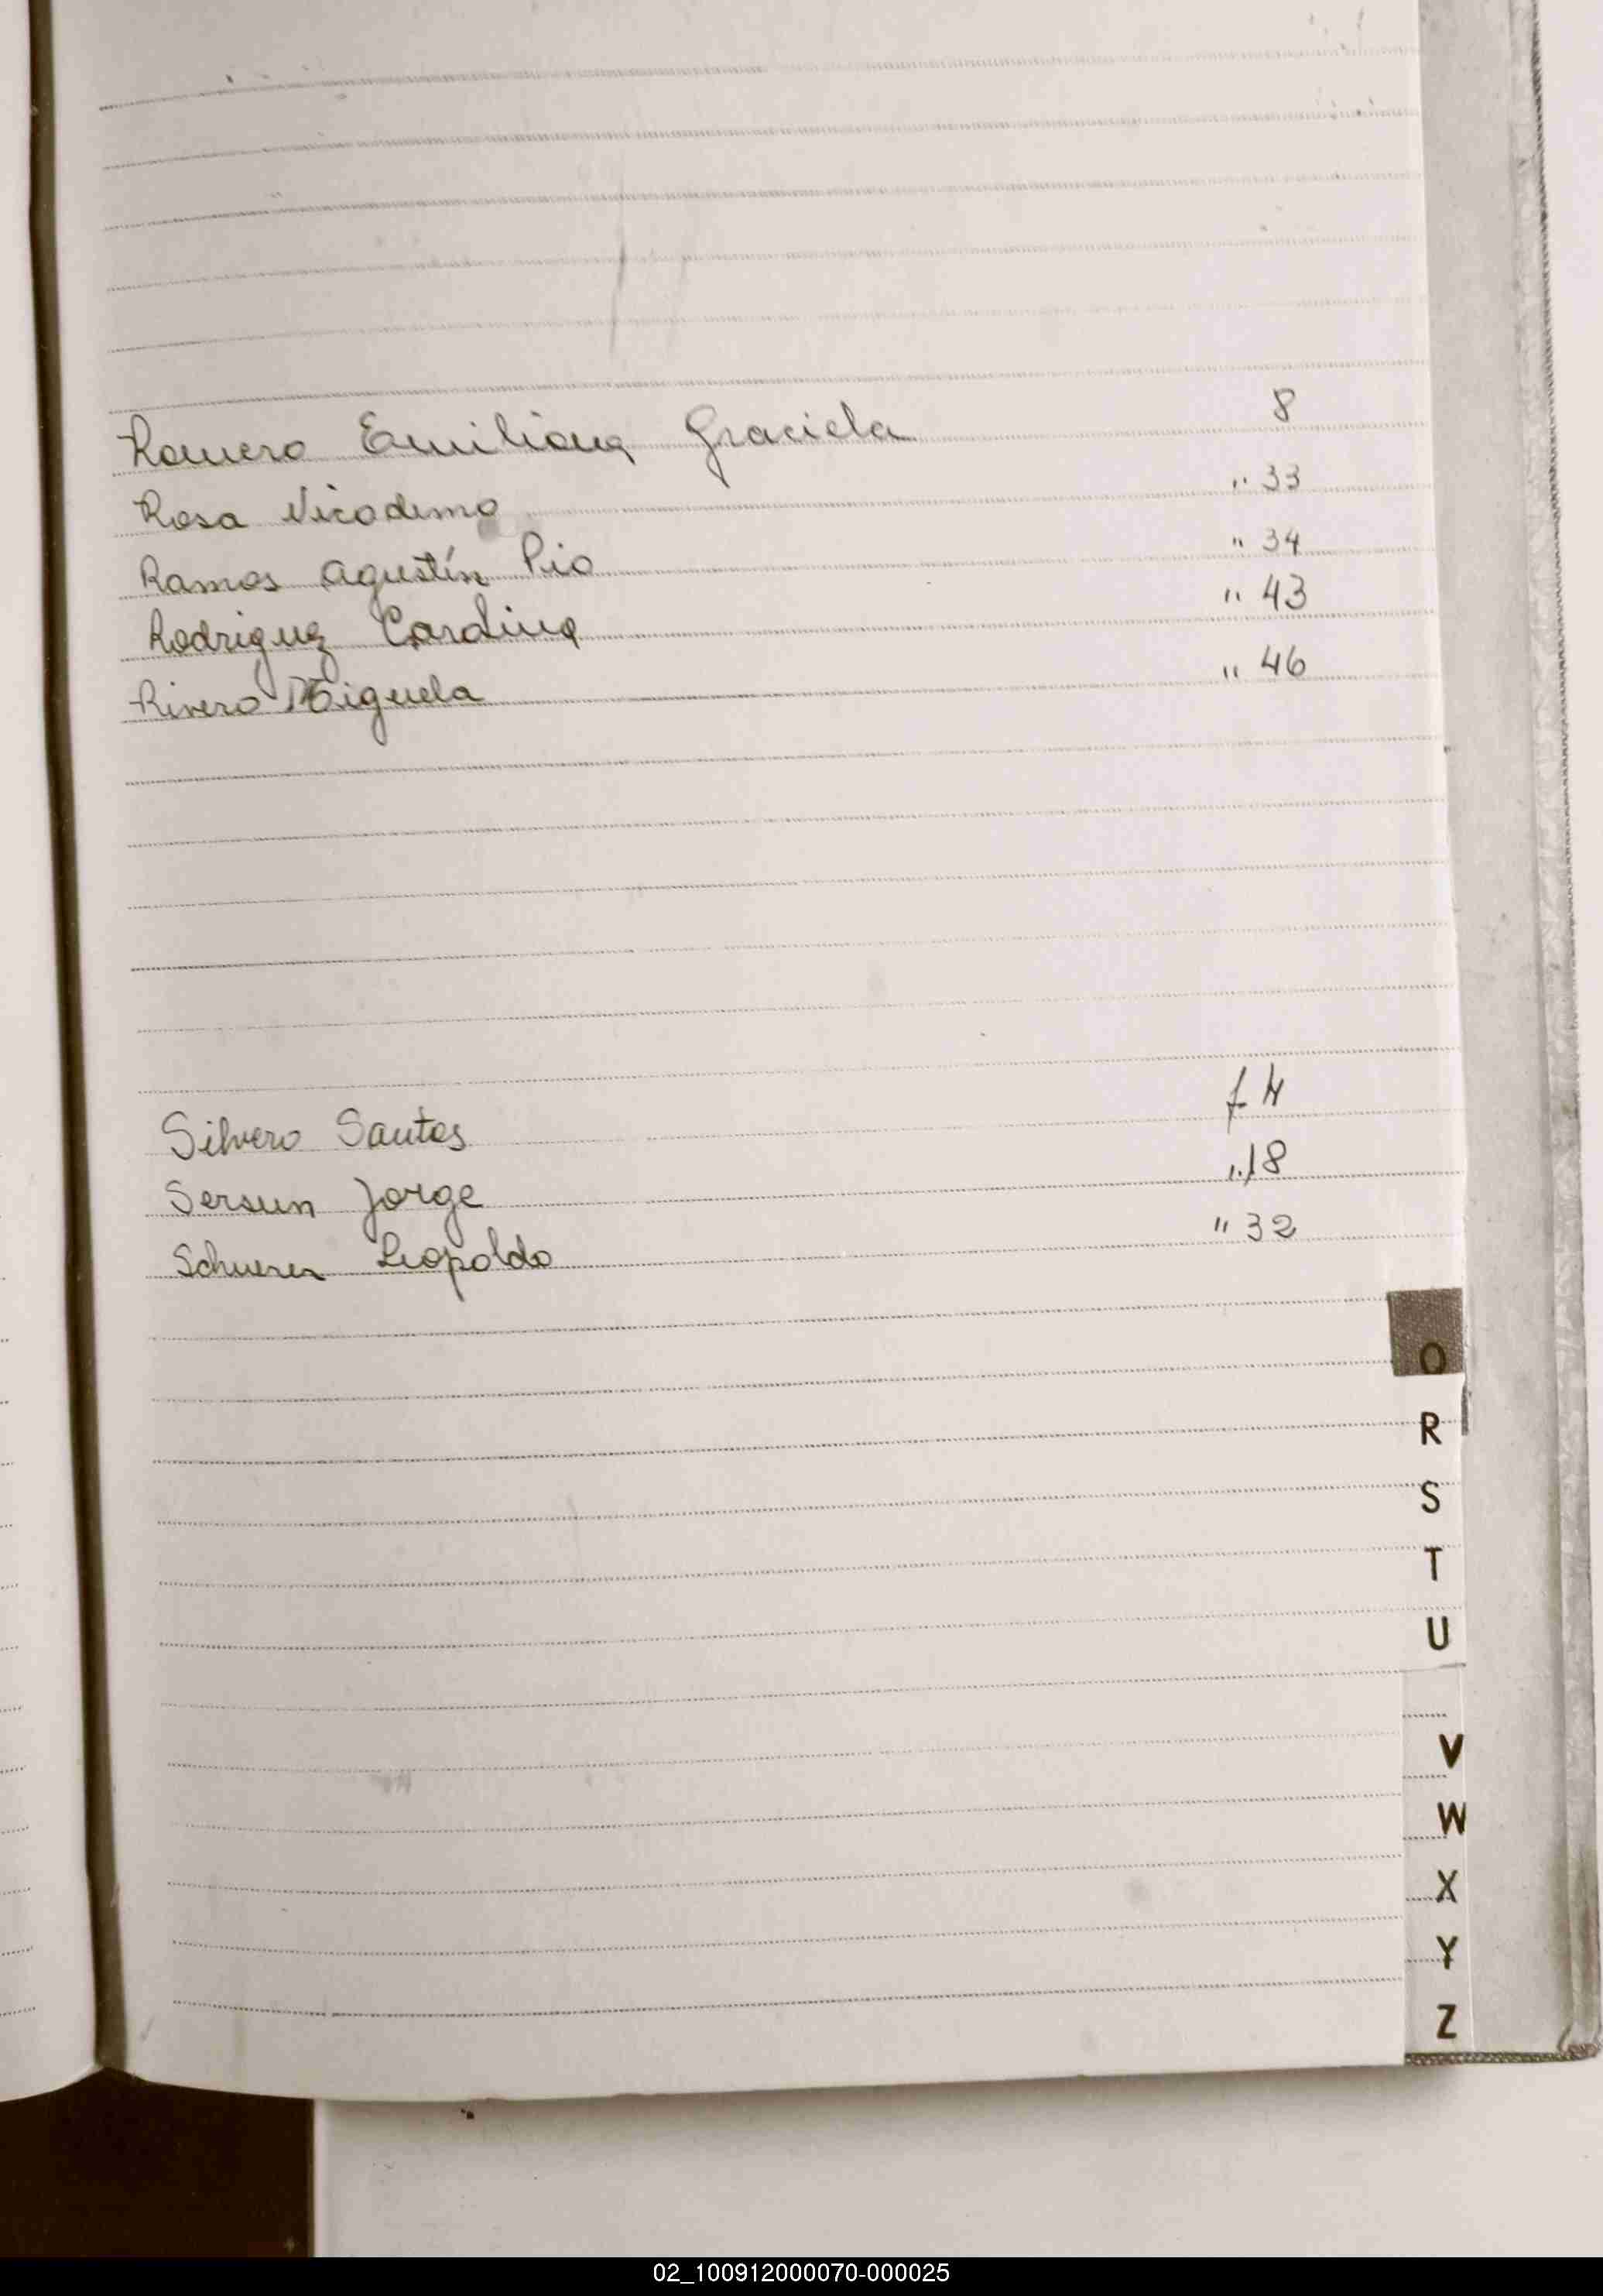 Romero Emiliana Graciela 8
Rosa Nicodemo " 33
Ramos Agustín Pio " 34
Rodriguez Cardina " 43
Rivero Miguela " 46
Silvero Santos f 4
Sersun Jorge " 18
Leopoldo " 32
Q
R
S
T
U
V
W
X
Y
Z
02_100912000070-000025